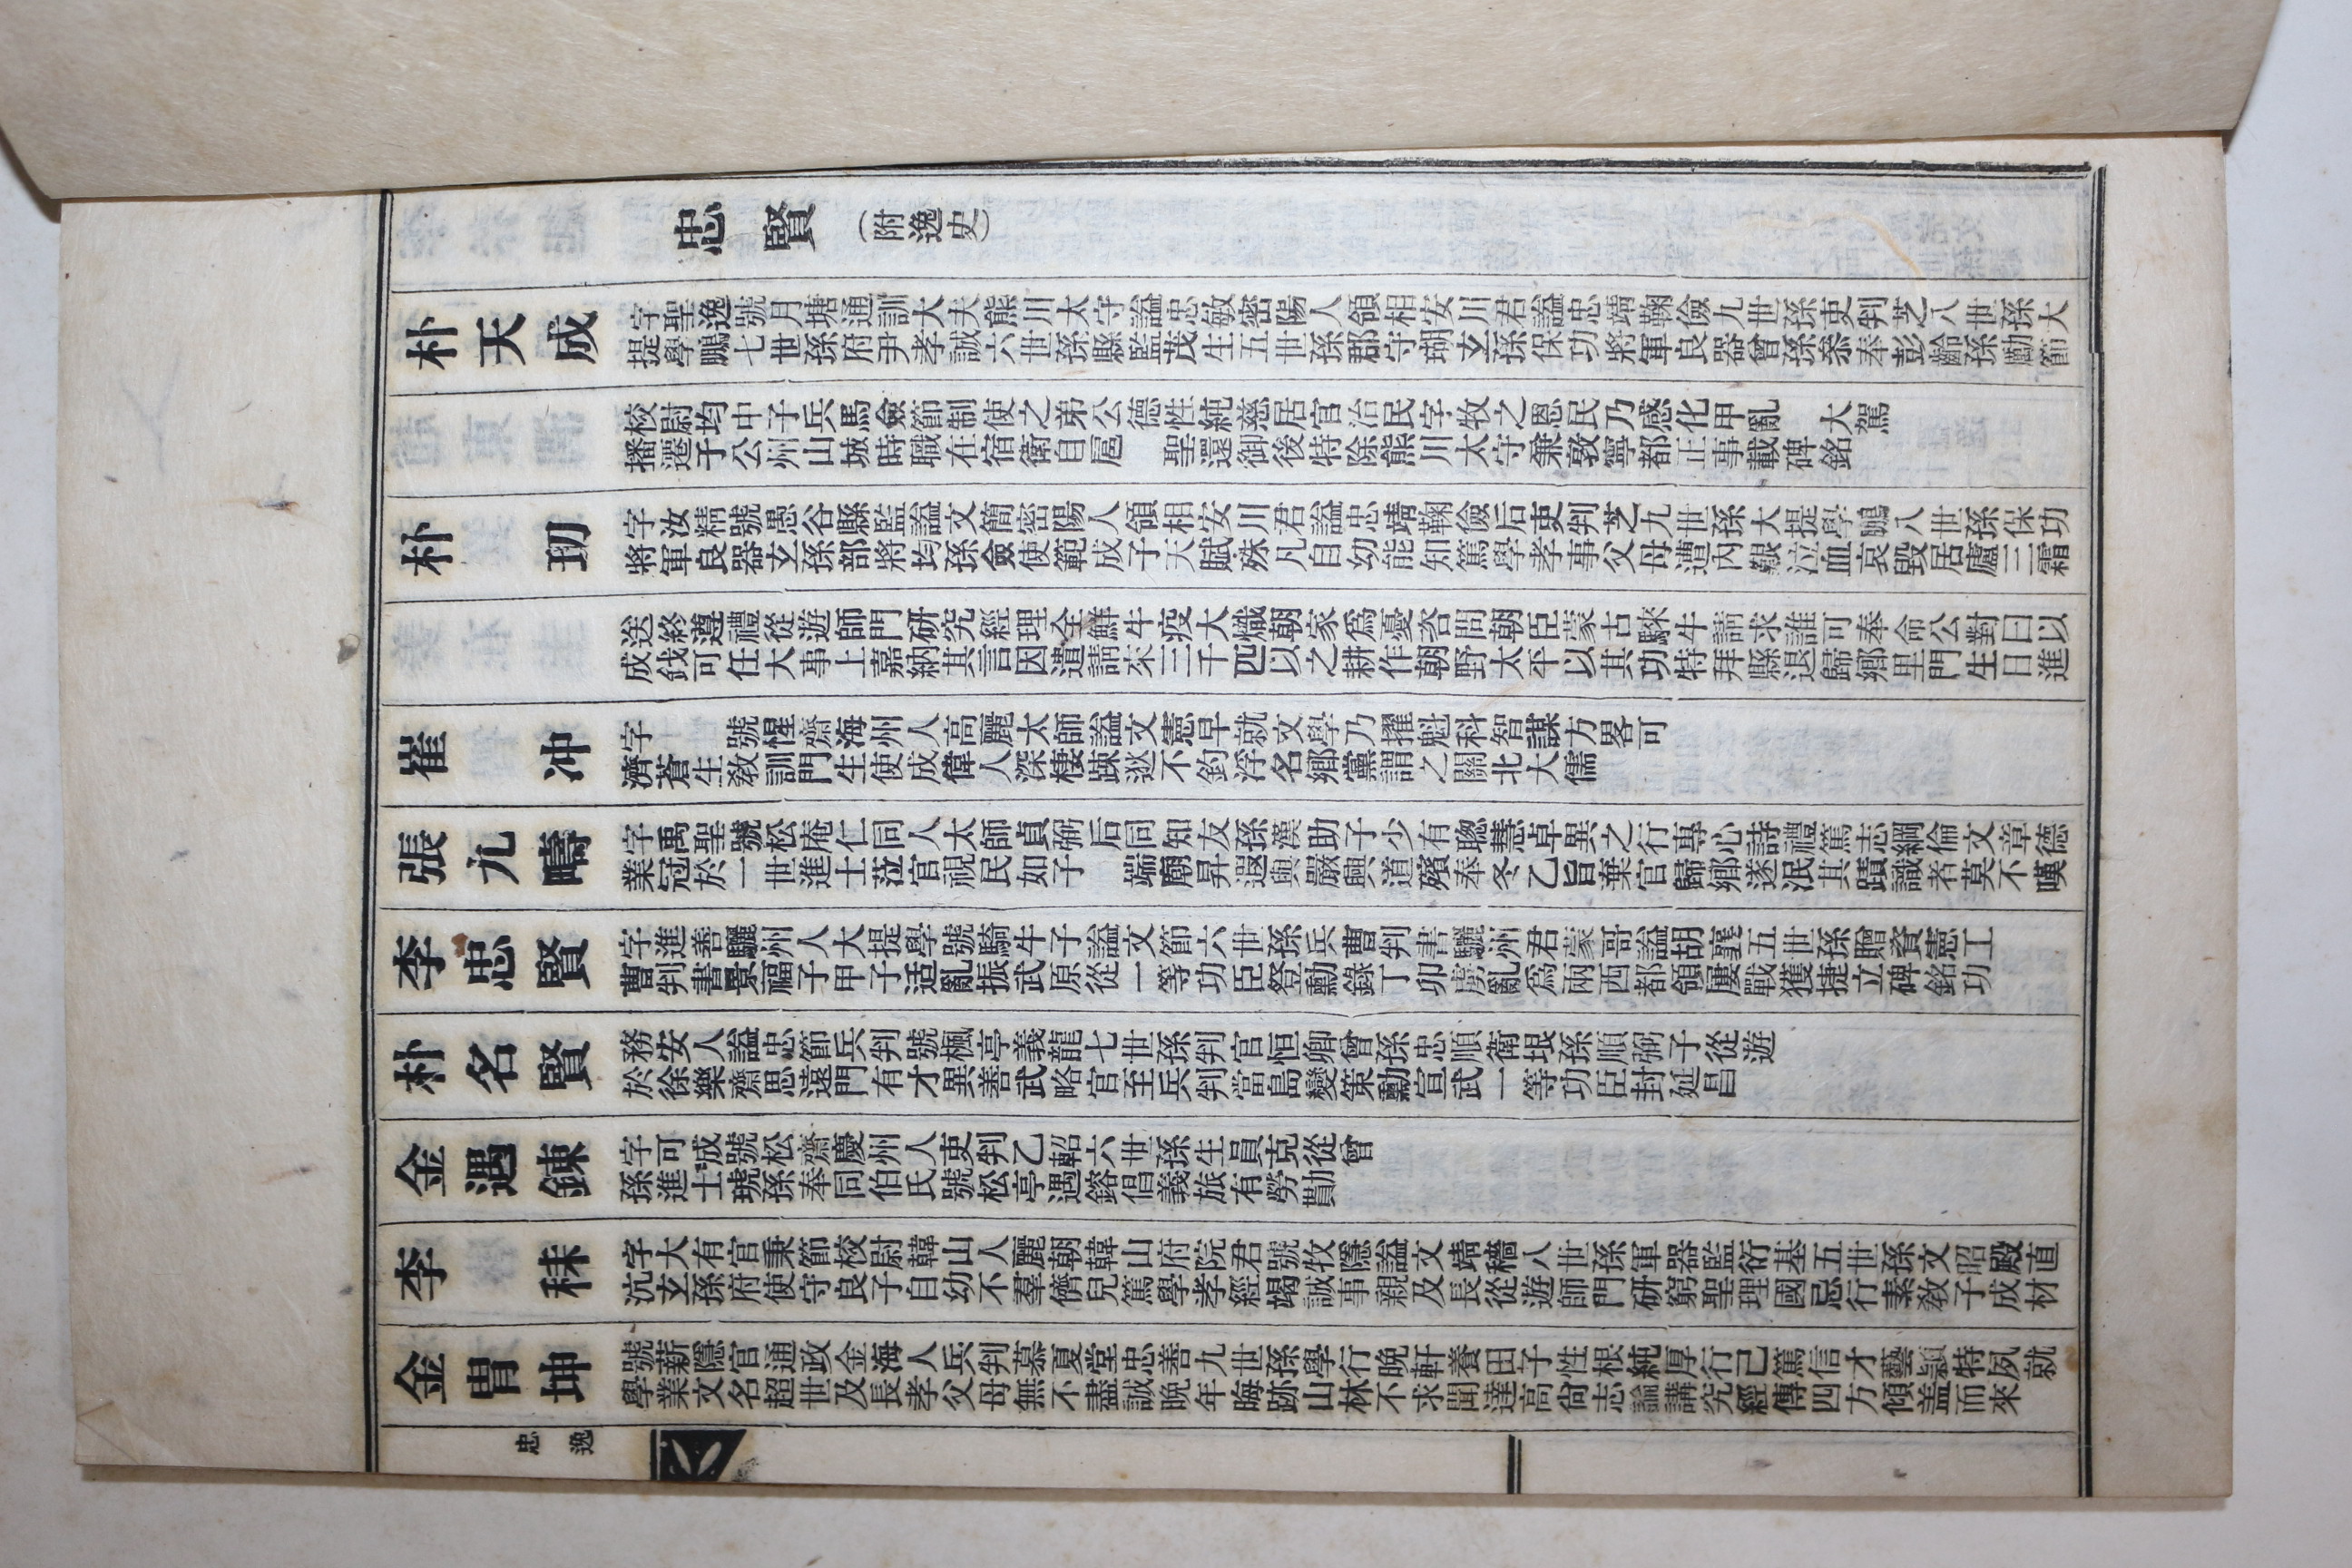 忠賢（附逸史）
朴天成
字聖逸號月塘通訓大夫熊川太守謚忠敏密陽人領相安川君謚忠靖鞠儉九世孫吏判芝八世孫大
提學鵬七世孫府尹孝誠六世孫縣監茂生五世孫郡守瑚玄孫保功將軍良器曾孫叅奉彭齡孫勵節
校尉均中子兵馬僉節制使之弟公德性純慈居官治民字牧之恩民乃感化甲亂　大駕
播遷于公州山城時職在宿衛自扈　聖還御後特除熊川太守兼敦寧都正事載碑銘
朴　玏
字汝精號愚谷縣監謚文簡密陽人領相安川君謚忠靖鞠儉后吏判芝九世孫大提學鵬八世孫保功
將軍良器玄孫部將均孫僉使範成子天賦殊凡自幼能知篤學孝事父母遭內艱泣血哀毀居廬三霜
送終遵禮從遊師門研究經理全鮮牛疫大熾朝家爲憂咨問朝臣蒙古騋牛請求誰可奉命公對曰以
成釴可任大事上嘉納其言因遣請來三千匹以之耕作朝野太平以其功特拜縣退歸鄕里門生日進
崔　冲
字　　號惺齋海州人高麗太師謚文憲早就文學乃擢魁科智謀方畧可
濟蒼生敎訓門生使成偉人深棲踈逖不釣浮名鄕黨謂之關北大儒
張九疇
字禹聖號松庵仁同人太師貞弼后同知友孫漢助子少有聰慧卓異之行專心詩禮篤志綱倫文章德
業冠於一世進士莅官視民如子　端廟昇遐與嚴興道殯奉冬乙旨棄官歸鄕遂泯其蹟識者莫不嘆
李忠賢
字進善驪州人大提學號騎牛子謚文節六世孫兵曹判書驪州君蒙哥謚胡襄五世孫贈資憲工
曹判書景福子甲子适亂振武原從一等功臣登勳錄丁卯虜亂爲兩西都領屢戰獲捷立碑銘功
朴名賢
務安人謚忠節兵判號楓亭義龍七世孫判官恒卿曾孫忠順衛垠孫順弼子從遊
於徐樂齋思遠門有才異善武略官至兵判當島變策勳宣武一等功臣封延昌
金遇鍊
字可成號松齋慶州人吏判乙軺六世孫生員克從曾
孫進士琥孫奉同伯氏號松亭遇鎔倡義旅有勞勩
李　秣
字大有官秉節校尉韓山人麗朝韓山府院君號牧隱謚文靖穡八世孫軍器監衍基五世孫文昭殿直
沆玄孫府使守良子自幼不羣儕兒篤學孝經竭誠事親及長從遊師門研窮聖理國忌行素敎子成材
金胄坤
號薪隱官通政金海人兵判慕夏堂忠善九世孫學行晩軒養田子性根純厚行己篤信才藝穎特夙就
學業文名超世及長孝父母無不盡誠晩年晦跡山林不求聞達高尙志論講究經傳四方傾盖而來
忠逸